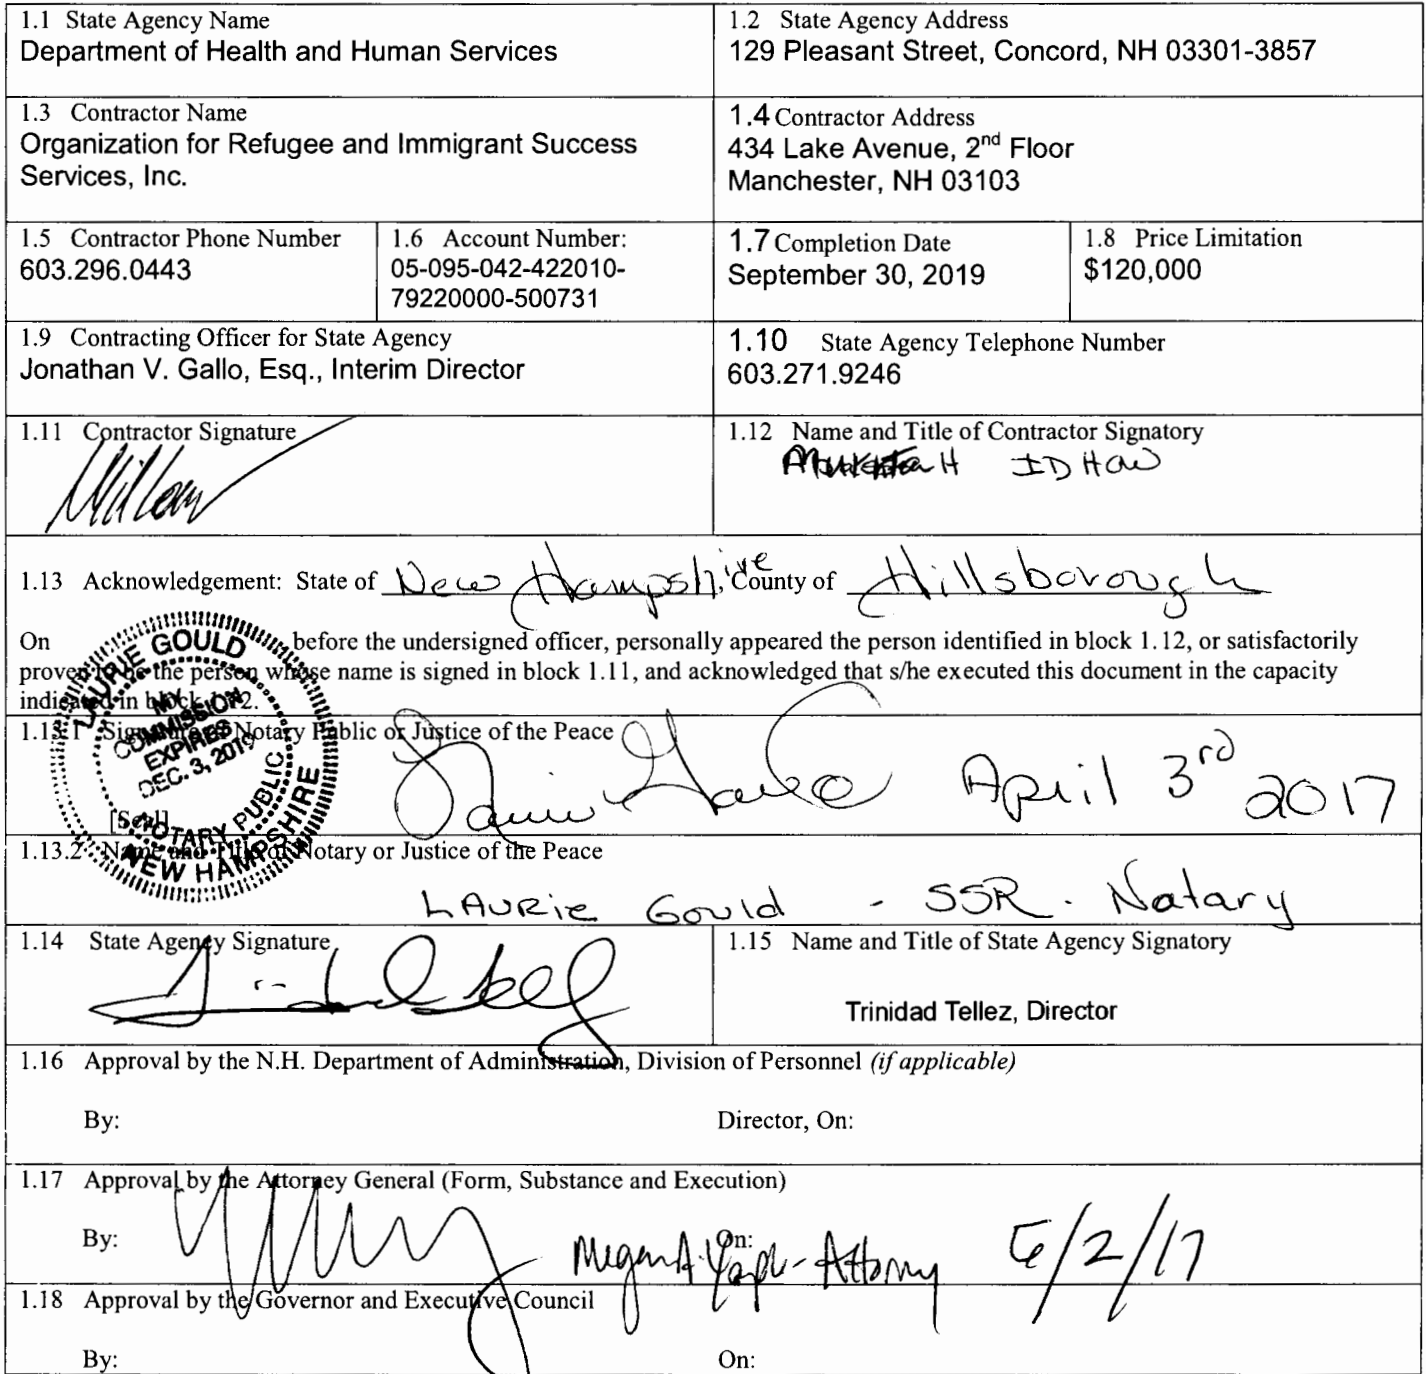 1.1 State Agency Name
Department of Health and Human Services
1.2 State Agency Address
129 Pleasant Street, Concord, NH 03301-3857
1.3 Contractor Name
Organization for Refugee and Immigrant Success
Services, Inc.
1.4 Contractor Address
434 Lake Avenue, 2nd Floor
Manchester, NH 03103
1.5 Contractor Phone Number
603.296.0443
1.6 Account Number:
05-095-042-422010-
79220000-500731
1.7 Completion Date
September 30, 2019
1.8 Price Limitation
$120,000
1.9 Contracting Officer for State Agency
Jonathan V. Gallo, Esq., Interim Director
1.10 State Agency Telephone Number
603.271.9246
1.11 Contractor Signature
1.12 Name and Title of Contractor Signatory
IDHOW
1.13 Acknowledgement: State of New Hampshire, County of Hillsborough
On before the undersigned officer, personally appeared the person identified in block 1.12, or satisfactorily
proven to be the person whose name is signed in block 1.11, and acknowledged that s/he executed this document in the capacity
indicated in block 1.12.
LAURIE GOULD
MY
COMMISSION
EXPIRES
DEC. 3, 2019
NOTARY PUBLIC
NEW HAMPSHIRE
1.13.1 Signature of Notary Public or Justice of the Peace
Laurie Gould April 3rd 2017
[Seal]
1.13.2 Name and Title of Notary or Justice of the Peace
LAURIE Gould - SSR - Notary
1.14 State Agency Signature
1.15 Name and Title of State Agency Signatory
Trinidad Tellez, Director
1.16 Approval by the N.H. Department of Administration, Division of Personnel (if applicable)
By:
Director, On:
1.17 Approval by the Attorney General (Form, Substance and Execution)
By:
On:
Megan A. - Attorney 6/2/17
1.18 Approval by the Governor and Executive Council
By:
On: